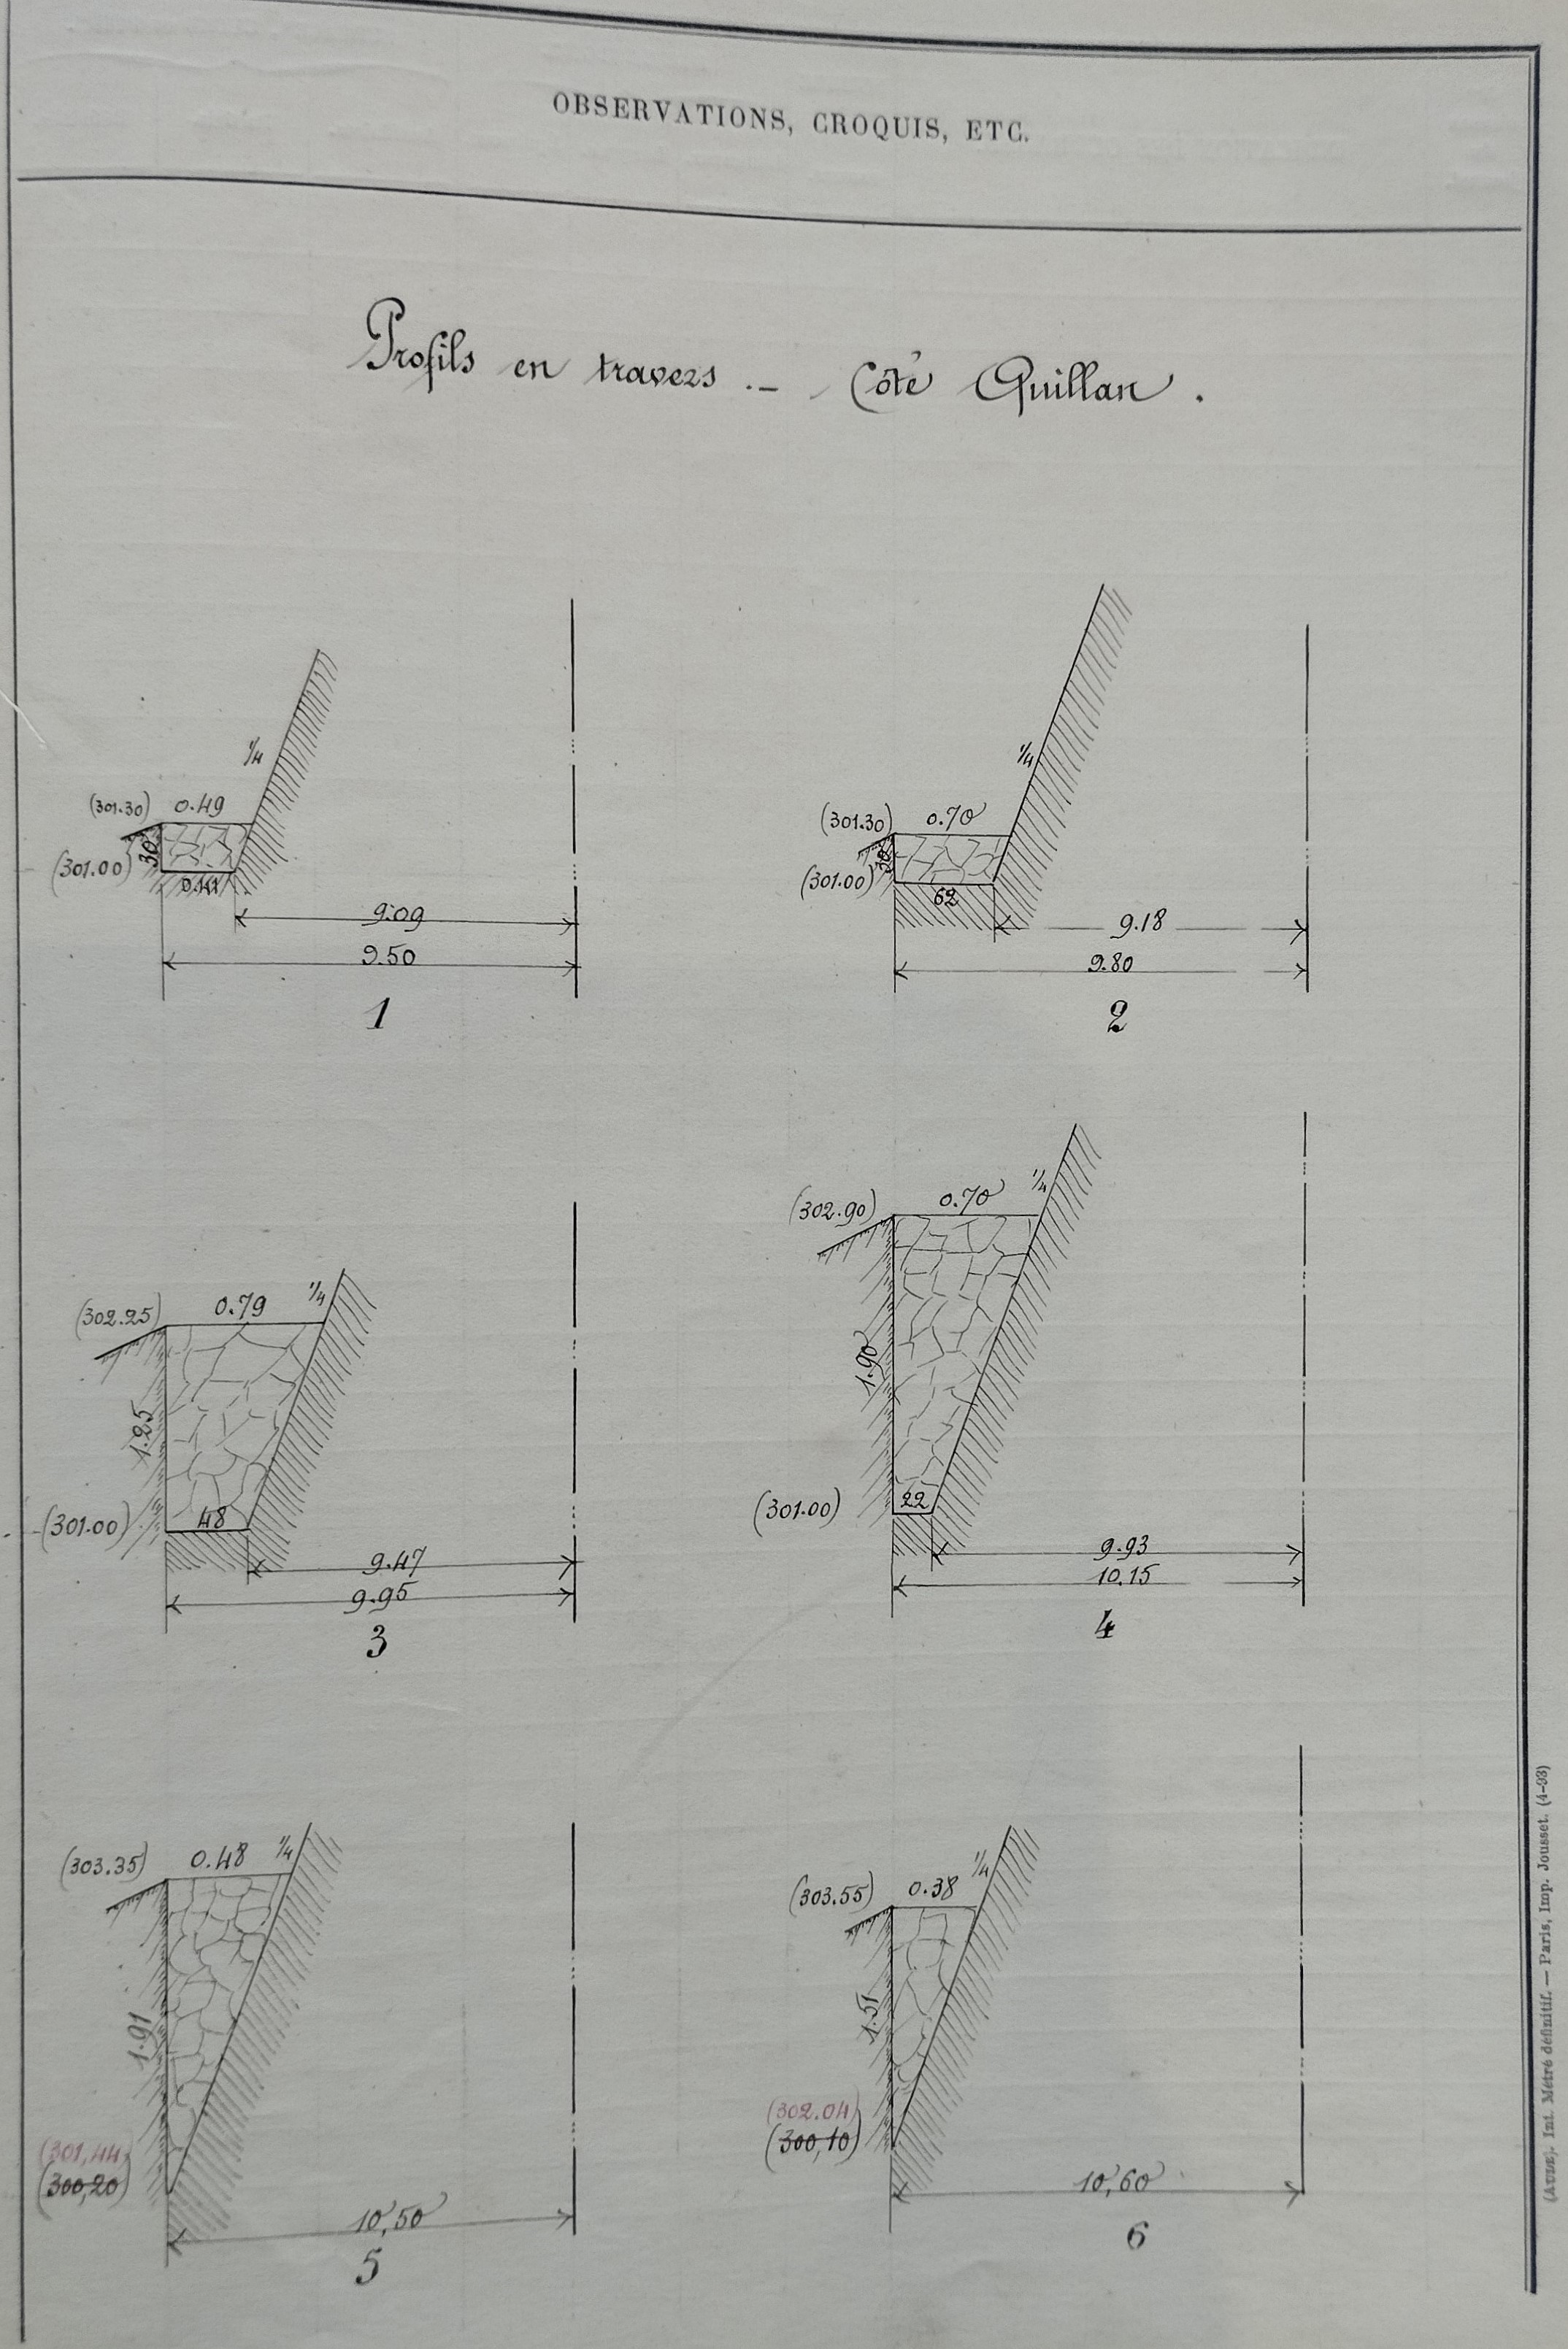 OBSERVATIONS, CROQUIS, ETC.
Profils en travers .- Côté Quillan .
1/4
(301.30) 0.49
30
(301.00)
0.41
9.09
9.50
1
1/4
(301.30) 0.70
30
(301.00)
62
9.18
9.80
2
(302.25) 0.79 1/4
1.25
(301.00) 48
9.47
9.95
3
(302.90) 0.70 1/4
1.90
(301.00) 22
9.93
10.15
4
(303.35) 0.48 1/4
1.91
(301,44)
(300,20)
10,50
5
(303.55) 0.38 1/4
1.51
(302.04)
(300,10)
10,60
6
(AUDE). Int. Métré définitif. — Paris, Imp. Jousset. (4-93)